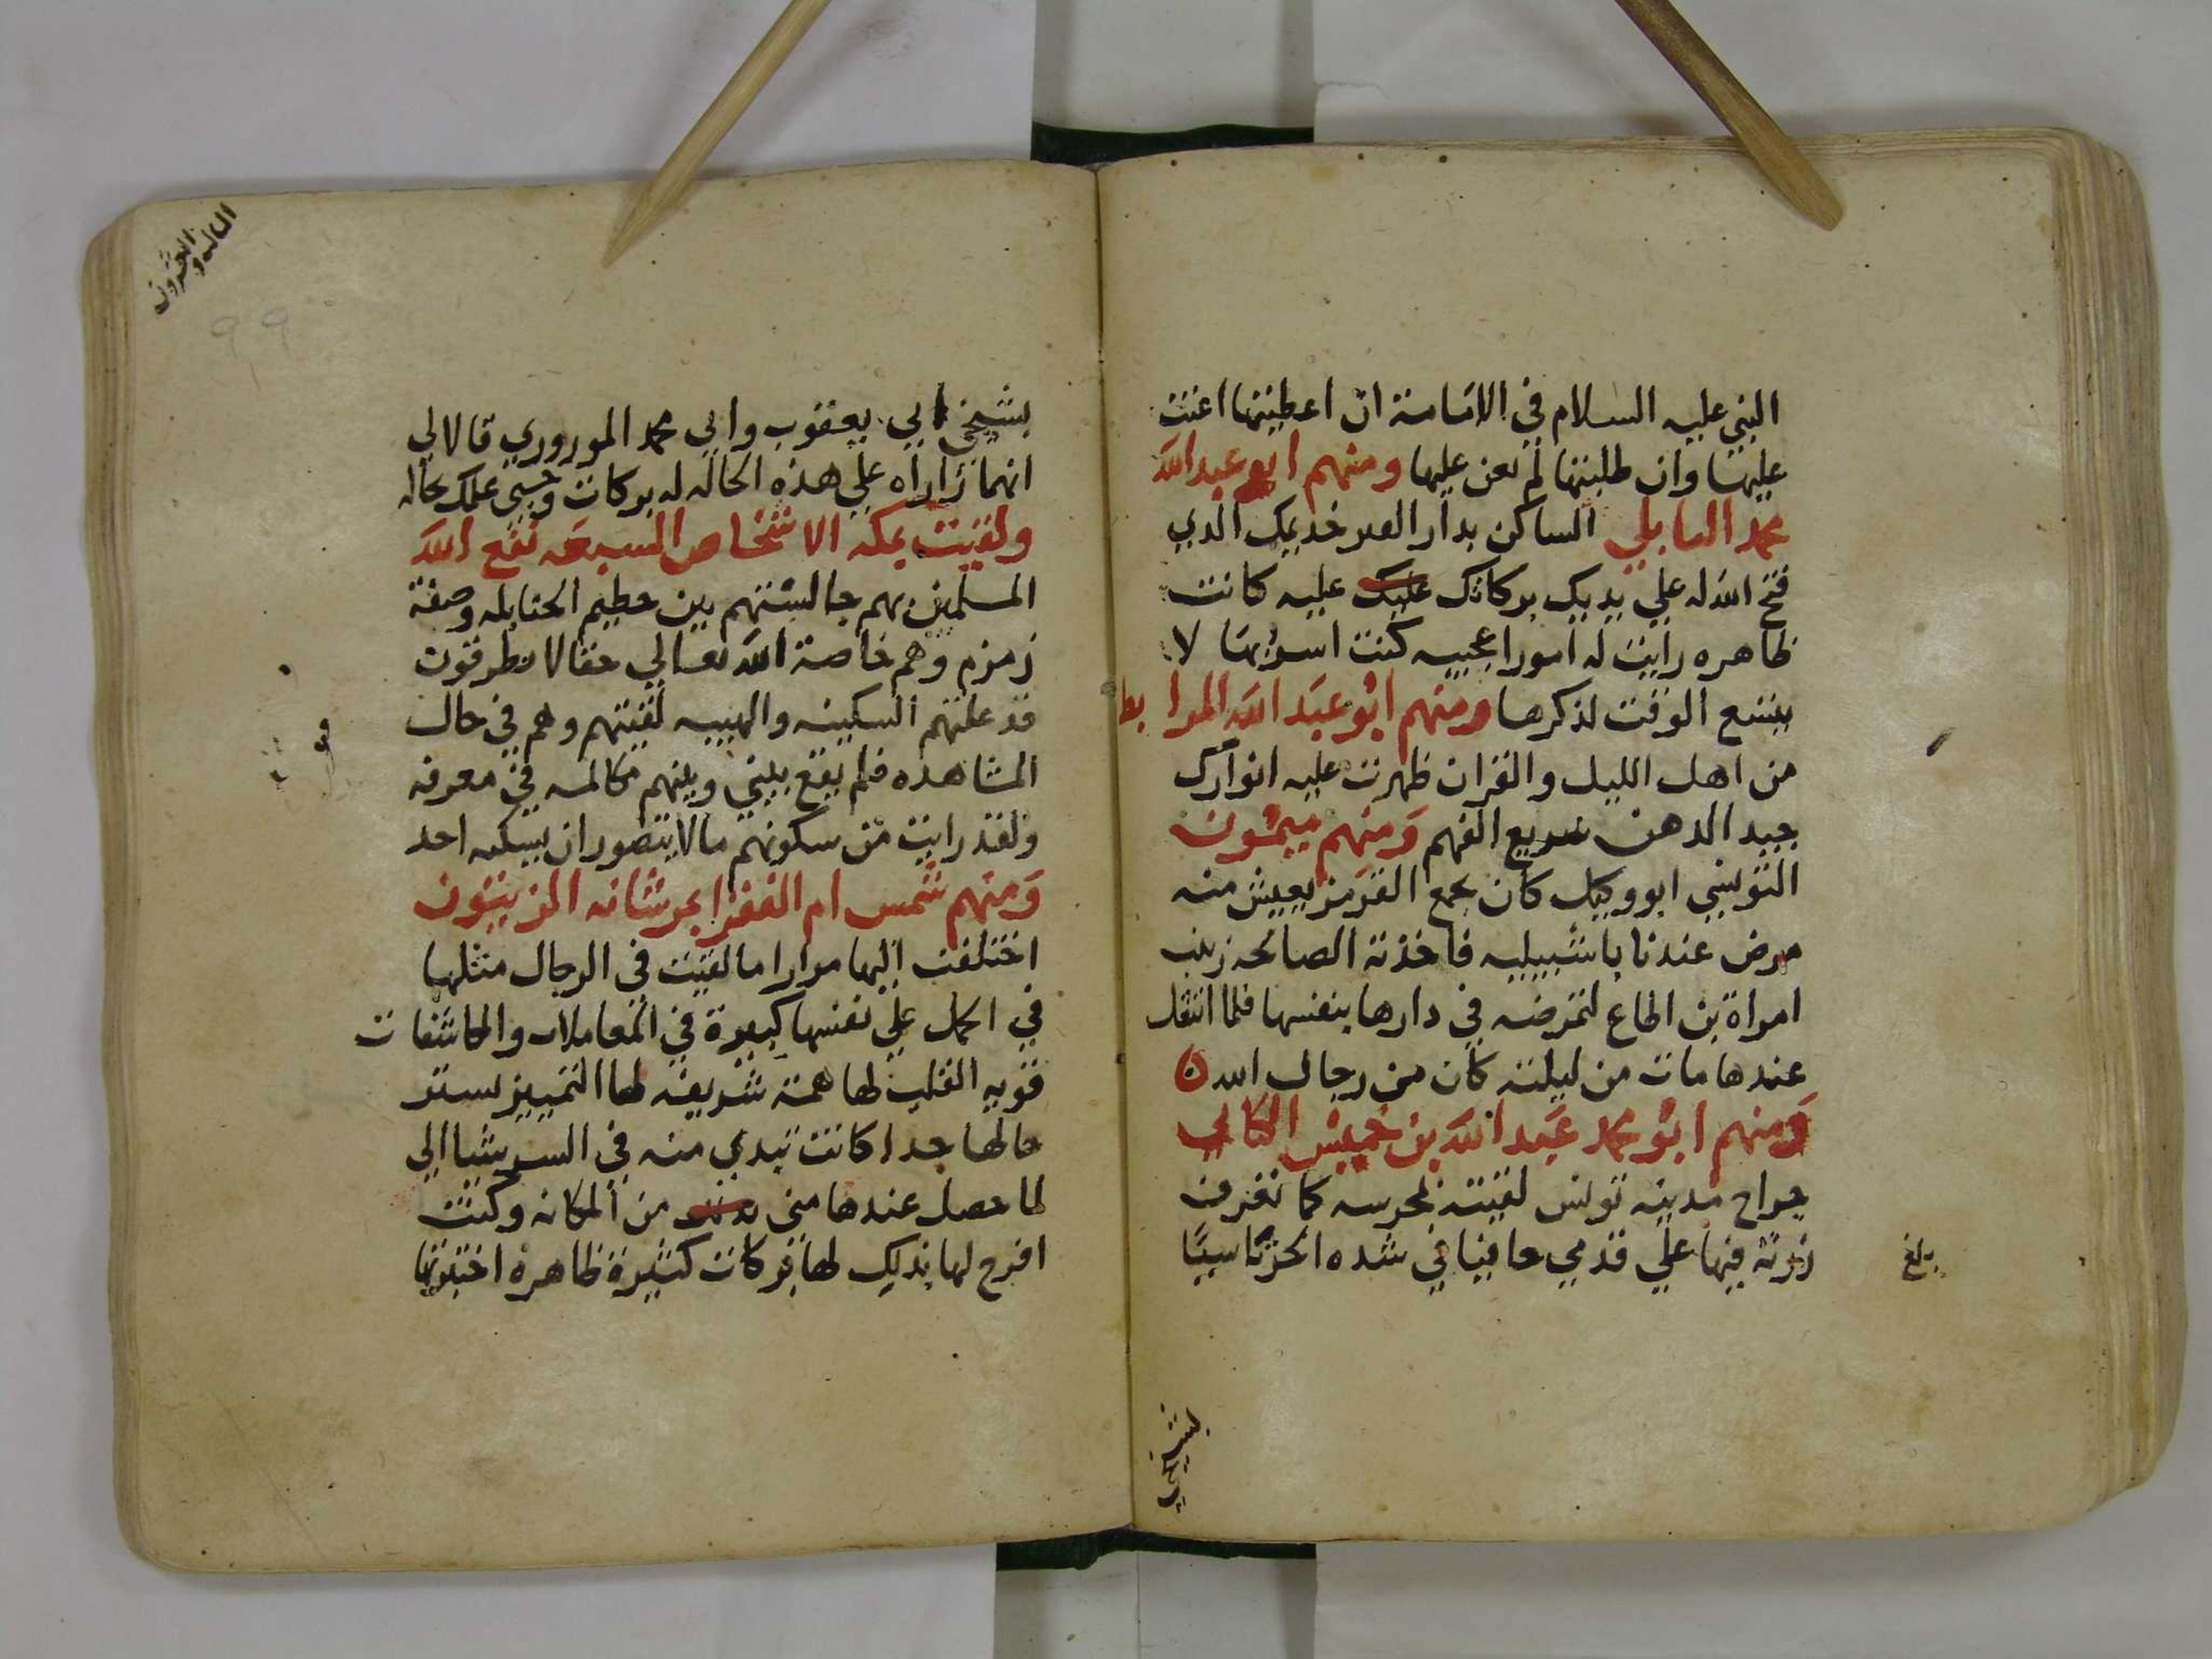 النبي عليه السلام في الامامة ان اعطيتها اعنت
عليها وان طلبتها لم تعن عليها ومنهم ابو عبد الله
محمد النابلي الساكن بدار خديمك الذي
فتح الله له علي يديك بركاتك عليك عليه كانت
ظاهره رايت له امورا عجيبه كنت اسر بها لا
يتسع الوقت لذكرها ومنهم ابو عبد الله المرابط
من اهل الليل والقران ظهرت عليه انوارك
جيد الذهن سريع الفهم ومنهم ميمون
التونسي ابو وكيل كان يجمع القرمز يعيش منه
مرض عندنا باشبيليه فاخذته الصالحه زينب
امراة بن اطاع لتمرضه في دارها بنفسها فلما انتقل
عندها مات من ليلته كان من رجال الله ن
ومنهم ابو محمد عبد الله بن خميس الكناني
جراح مدينه تونس لقيته كما تعرف
زرته فيها علي قدمي حافيا في شده الحر تاسيا
بلغ
بشيخي
الثالث والعشرون
99
بشيخي ابي يعقوب وابي محمد الموروري قالا لي
انهما زاراه علي هذه الحاله له بركات وحسبي علمك بحاله
ولقيت بمكه الاشخاص السبعه نفع الله
المسلمين بهم جالستهم بين حطيم الحنابله وصفة
زمزم وهم خاصة الله تعالي حقا لا يطرفون
قد علتهم السكينه والهيبه لقيتهم وهم في حال
المشاهده فلم يقع بيني وبينهم مكالمه في معرفه
ولقد رايت من سكونهم ما لا يتصور ان يسكنه احد
ومنهم شمس ام الفقرا بمرشانه الزيتون
اختلفت اليها مرارا ما لقيت في الرجال مثلها
في الحمل علي نفسها كبيرة في المعاملات والمكاشفات
قويه القلب لها همة شريفه لها التمييز تستر
حالها جدا كانت تبدي منه في السر شيا الي
لما حصل عندها مني من المكانه وكنت
افرح لها بذلك لها بركات كثيرة ظاهرة اختبرتها